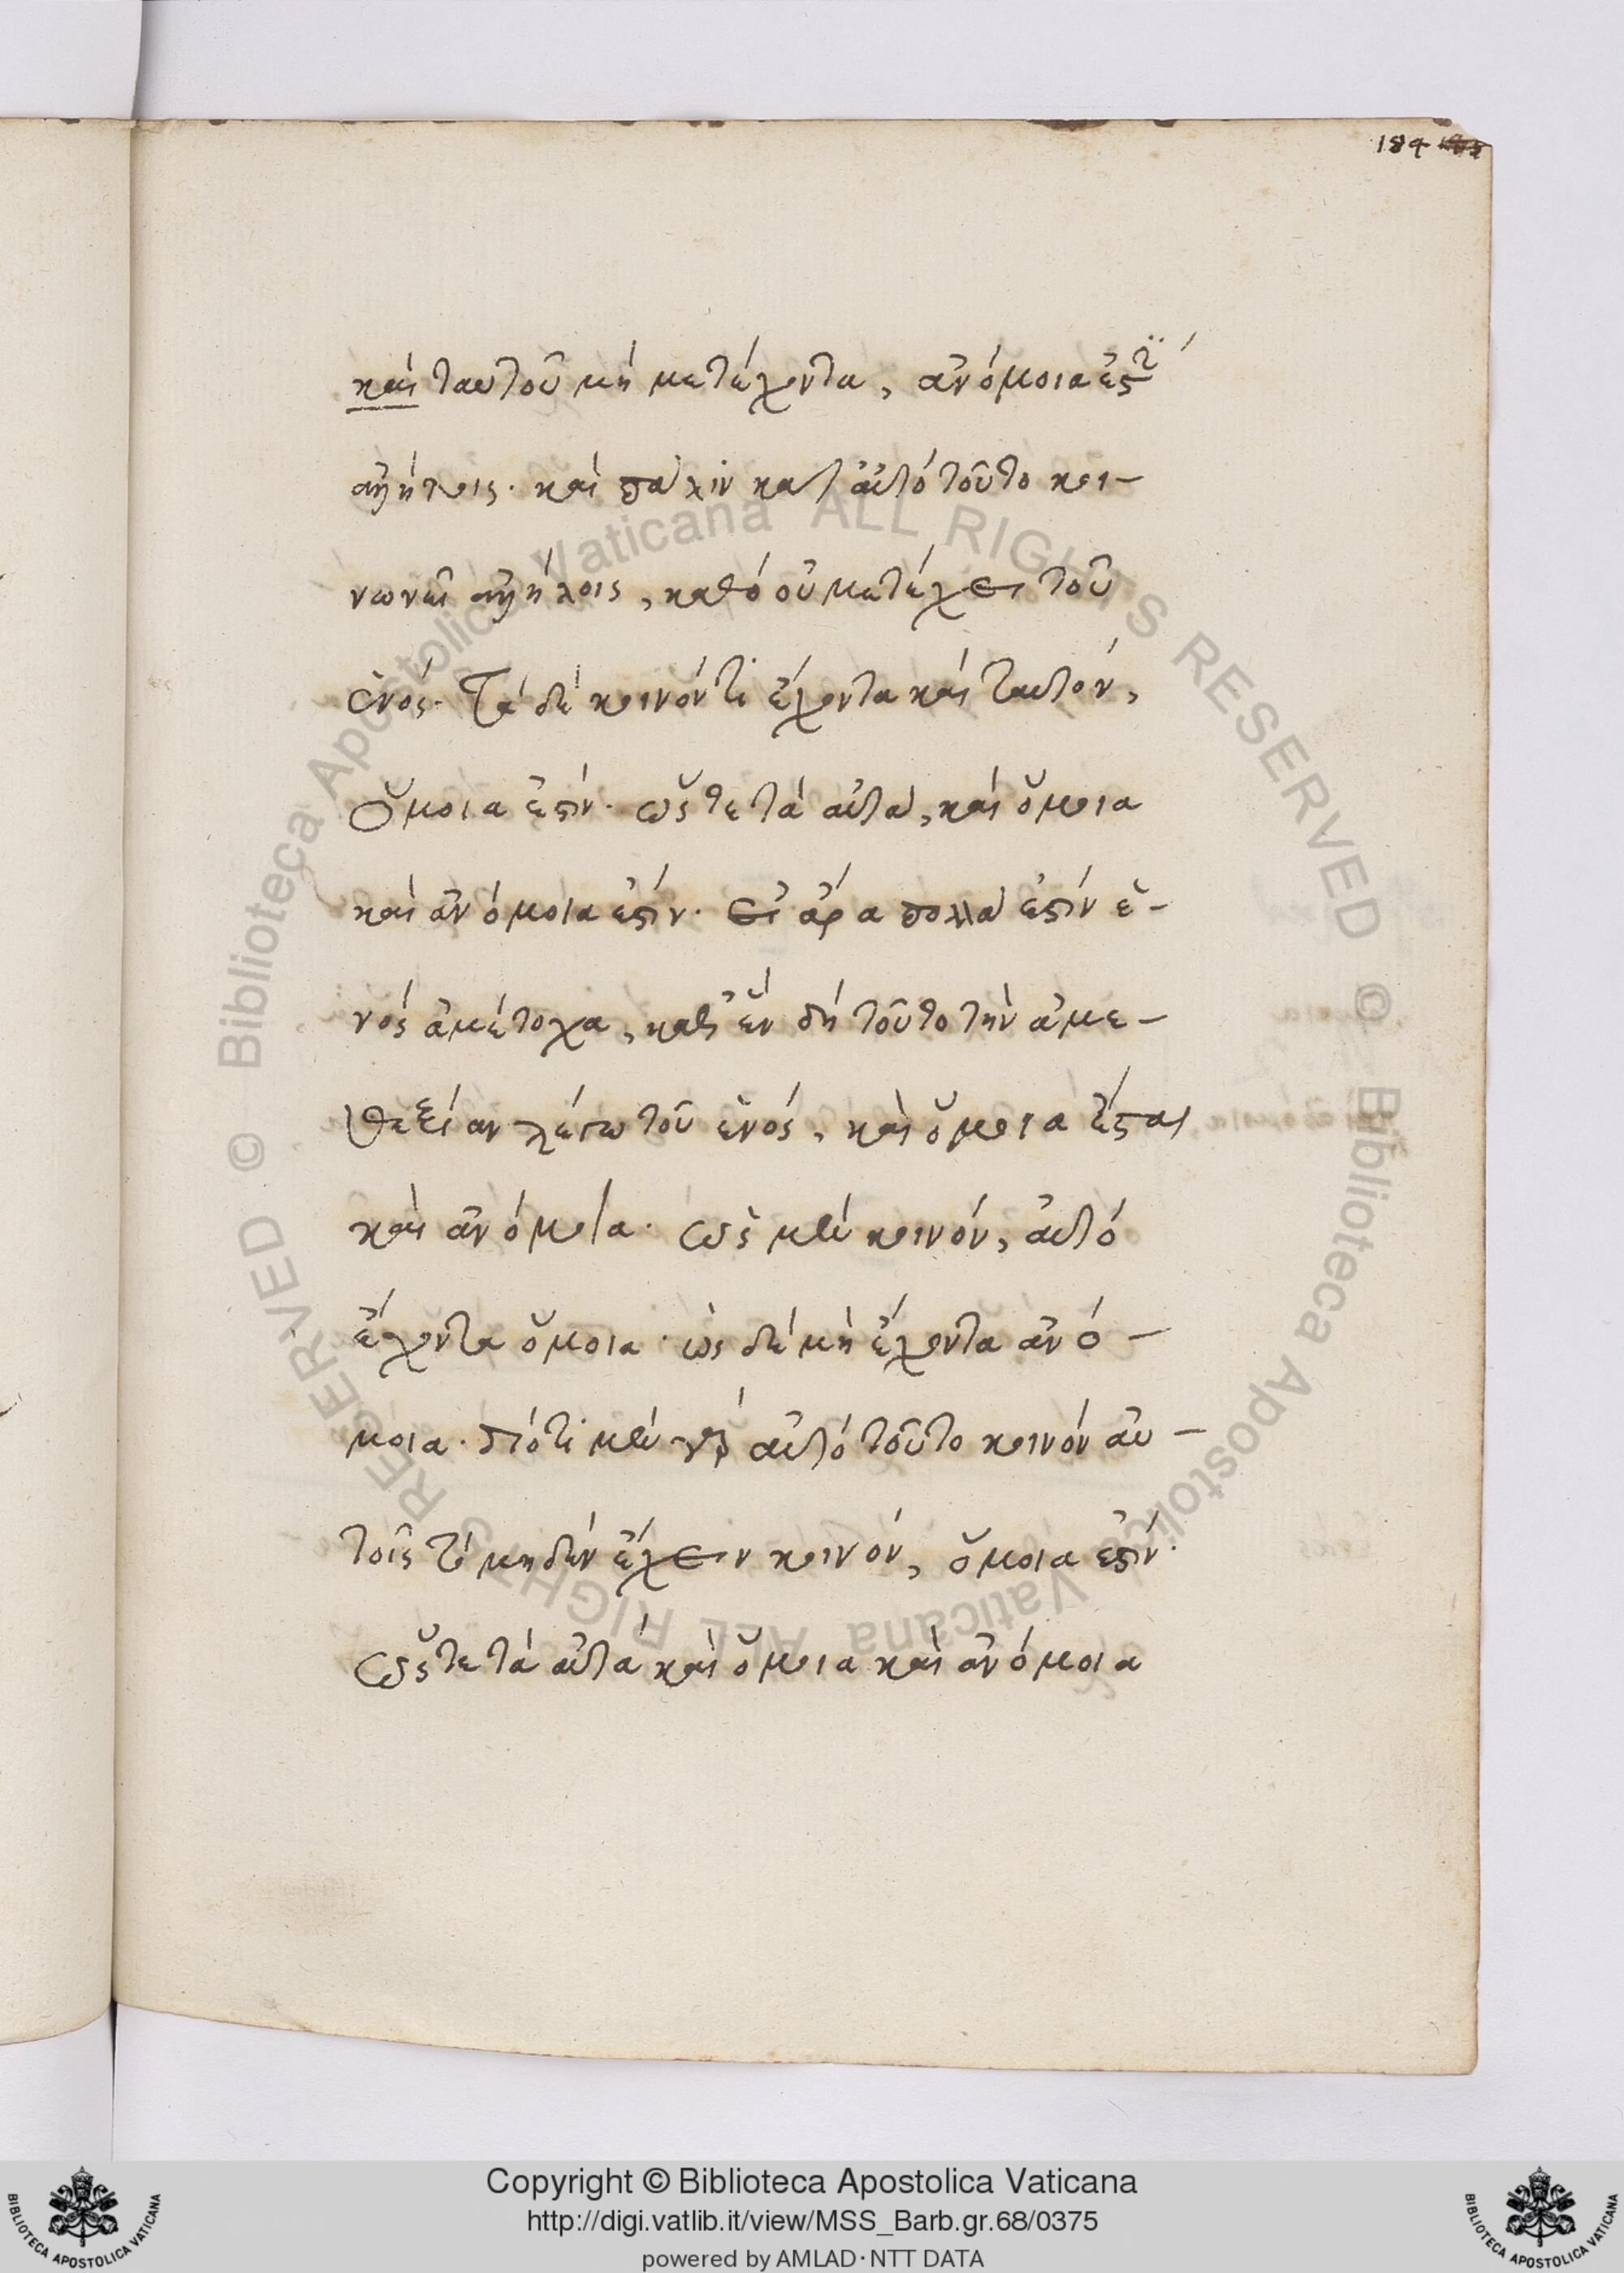 184
καὶ ταυτοῦ μὴ μετέχοντα, ἀνόμοια ἐστὶ
ἀλλήλοις· καὶ πάλιν κατ' αὐτὸ τοῦτο κοι-
νωνεῖ ἀλλήλοις, καθὸ οὐ μετέχει τοῦ
ἑνός· Τὰ δὲ κοινόν τι ἔχοντα καὶ ταυτόν,
ὅμοια ἐστίν· ὥστε τὰ αὐτὰ, καὶ ὅμοια
καὶ ἀνόμοια ἐστίν· εἰ ἄρα πολλὰ ἐστὶν ἑ-
νὸς ἀμέτοχα, καθ' ἓν δὴ τοῦτο τὴν ἀμε-
θεξίαν λέγω τοῦ ἑνός, καὶ ὅμοια ἔσται
καὶ ἀνόμοια· ὡς μὲν κοινόν, αὐτὸ
ἔχοντα ὅμοια· ὡς δὲ μὴ ἔχοντα ἀνό-
μοια· διότι μὲν γὰρ αὐτὸ τοῦτο κοινὸν αὐ-
τοῖς τὸ μηδὲν ἔχειν κοινόν, ὅμοια ἐστίν·
ὥστε τὰ αὐτὰ καὶ ὅμοια καὶ ἀνόμοια
© Biblioteca Apostolica Vaticana ALL RIGHTS RESERVED
© Biblioteca Apostolica Vaticana ALL RIGHTS RESERVED
Copyright © Biblioteca Apostolica Vaticana
http://digi.vatlib.it/view/MSS_Barb.gr.68/0375
powered by AMLAD·NTT DATA
BIBLIOTECA APOSTOLICA VATICANA
BIBLIOTECA APOSTOLICA VATICANA